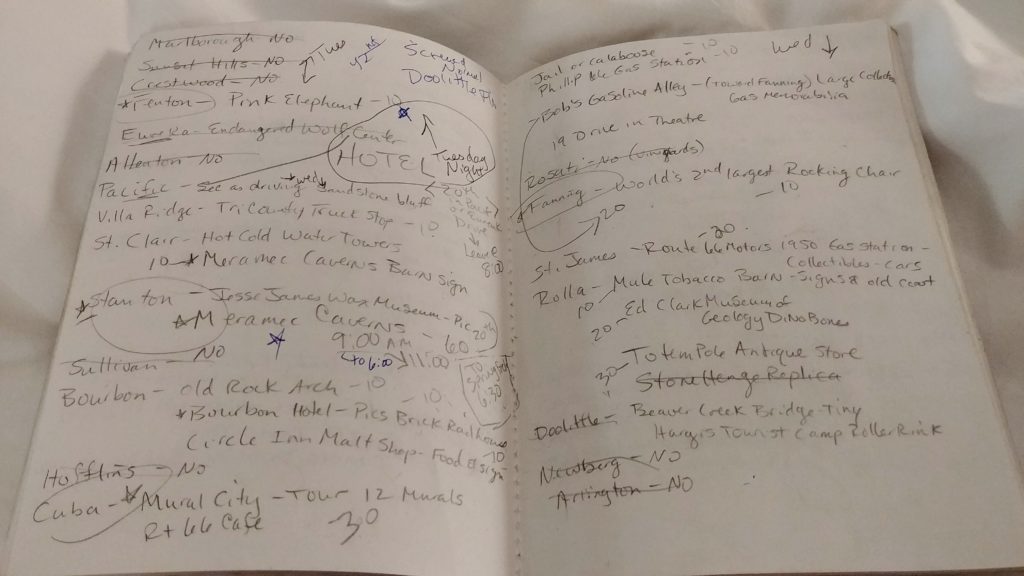 Marlborough - NO
Sunset Hills - NO
Crestwood - NO
Tues
42nd
Doolittle
*Fenton - Pink Elephant - 10
Eureka - Endangered Wolf Center
Allenton - NO
HOTEL
Tuesday Night
Pacific - See as driving Sandstone bluff
Wed
Villa Ridge - Tri County Truck Stop - 10
St. Clair - Hot Cold Water Towers
Leave
8:00
10 - *Meramec Caverns Barn sign
*Stanton - Jesse James Wax Museum - Pic
20
*Meramec Caverns - 60
9:00 AM
to 6:00 > 11:00
Sullivan - NO
6:30
Bourbon - Old Rock Arch - 10
*Bourbon Hotel - Pics Brick Railhouse
10
Circle Inn Malt Shop - Food & sign
10
- NO
Cuba - *Mural City - Tour 12 Murals
Rt 66 Cafe
30
Jail or calaboose - 10
Wed ↓
Phillip 66 Gas Station - 10
Bob's Gasoline Alley - (Toward Fanning) Large
Gas Memorabilia
19 Drive in Theatre
Rosati - NO
Fanning - World's 2nd largest Rocking Chair
- 10
20
30
St. James - Route 66 Motors 1950 Gas Station -
Collectibles - Cars
Rolla - Mule Tobacco Barn - Signs & old
10
20 - Ed Clark Museum of
Geology Dino Bones
30 - Totem Pole Antique Store
Stonehenge Replica
Doolittle - Beaver Creek Bridge - Tiny
Hargis Tourist Camp Roller Rink
Newberg - NO
Arlington - NO